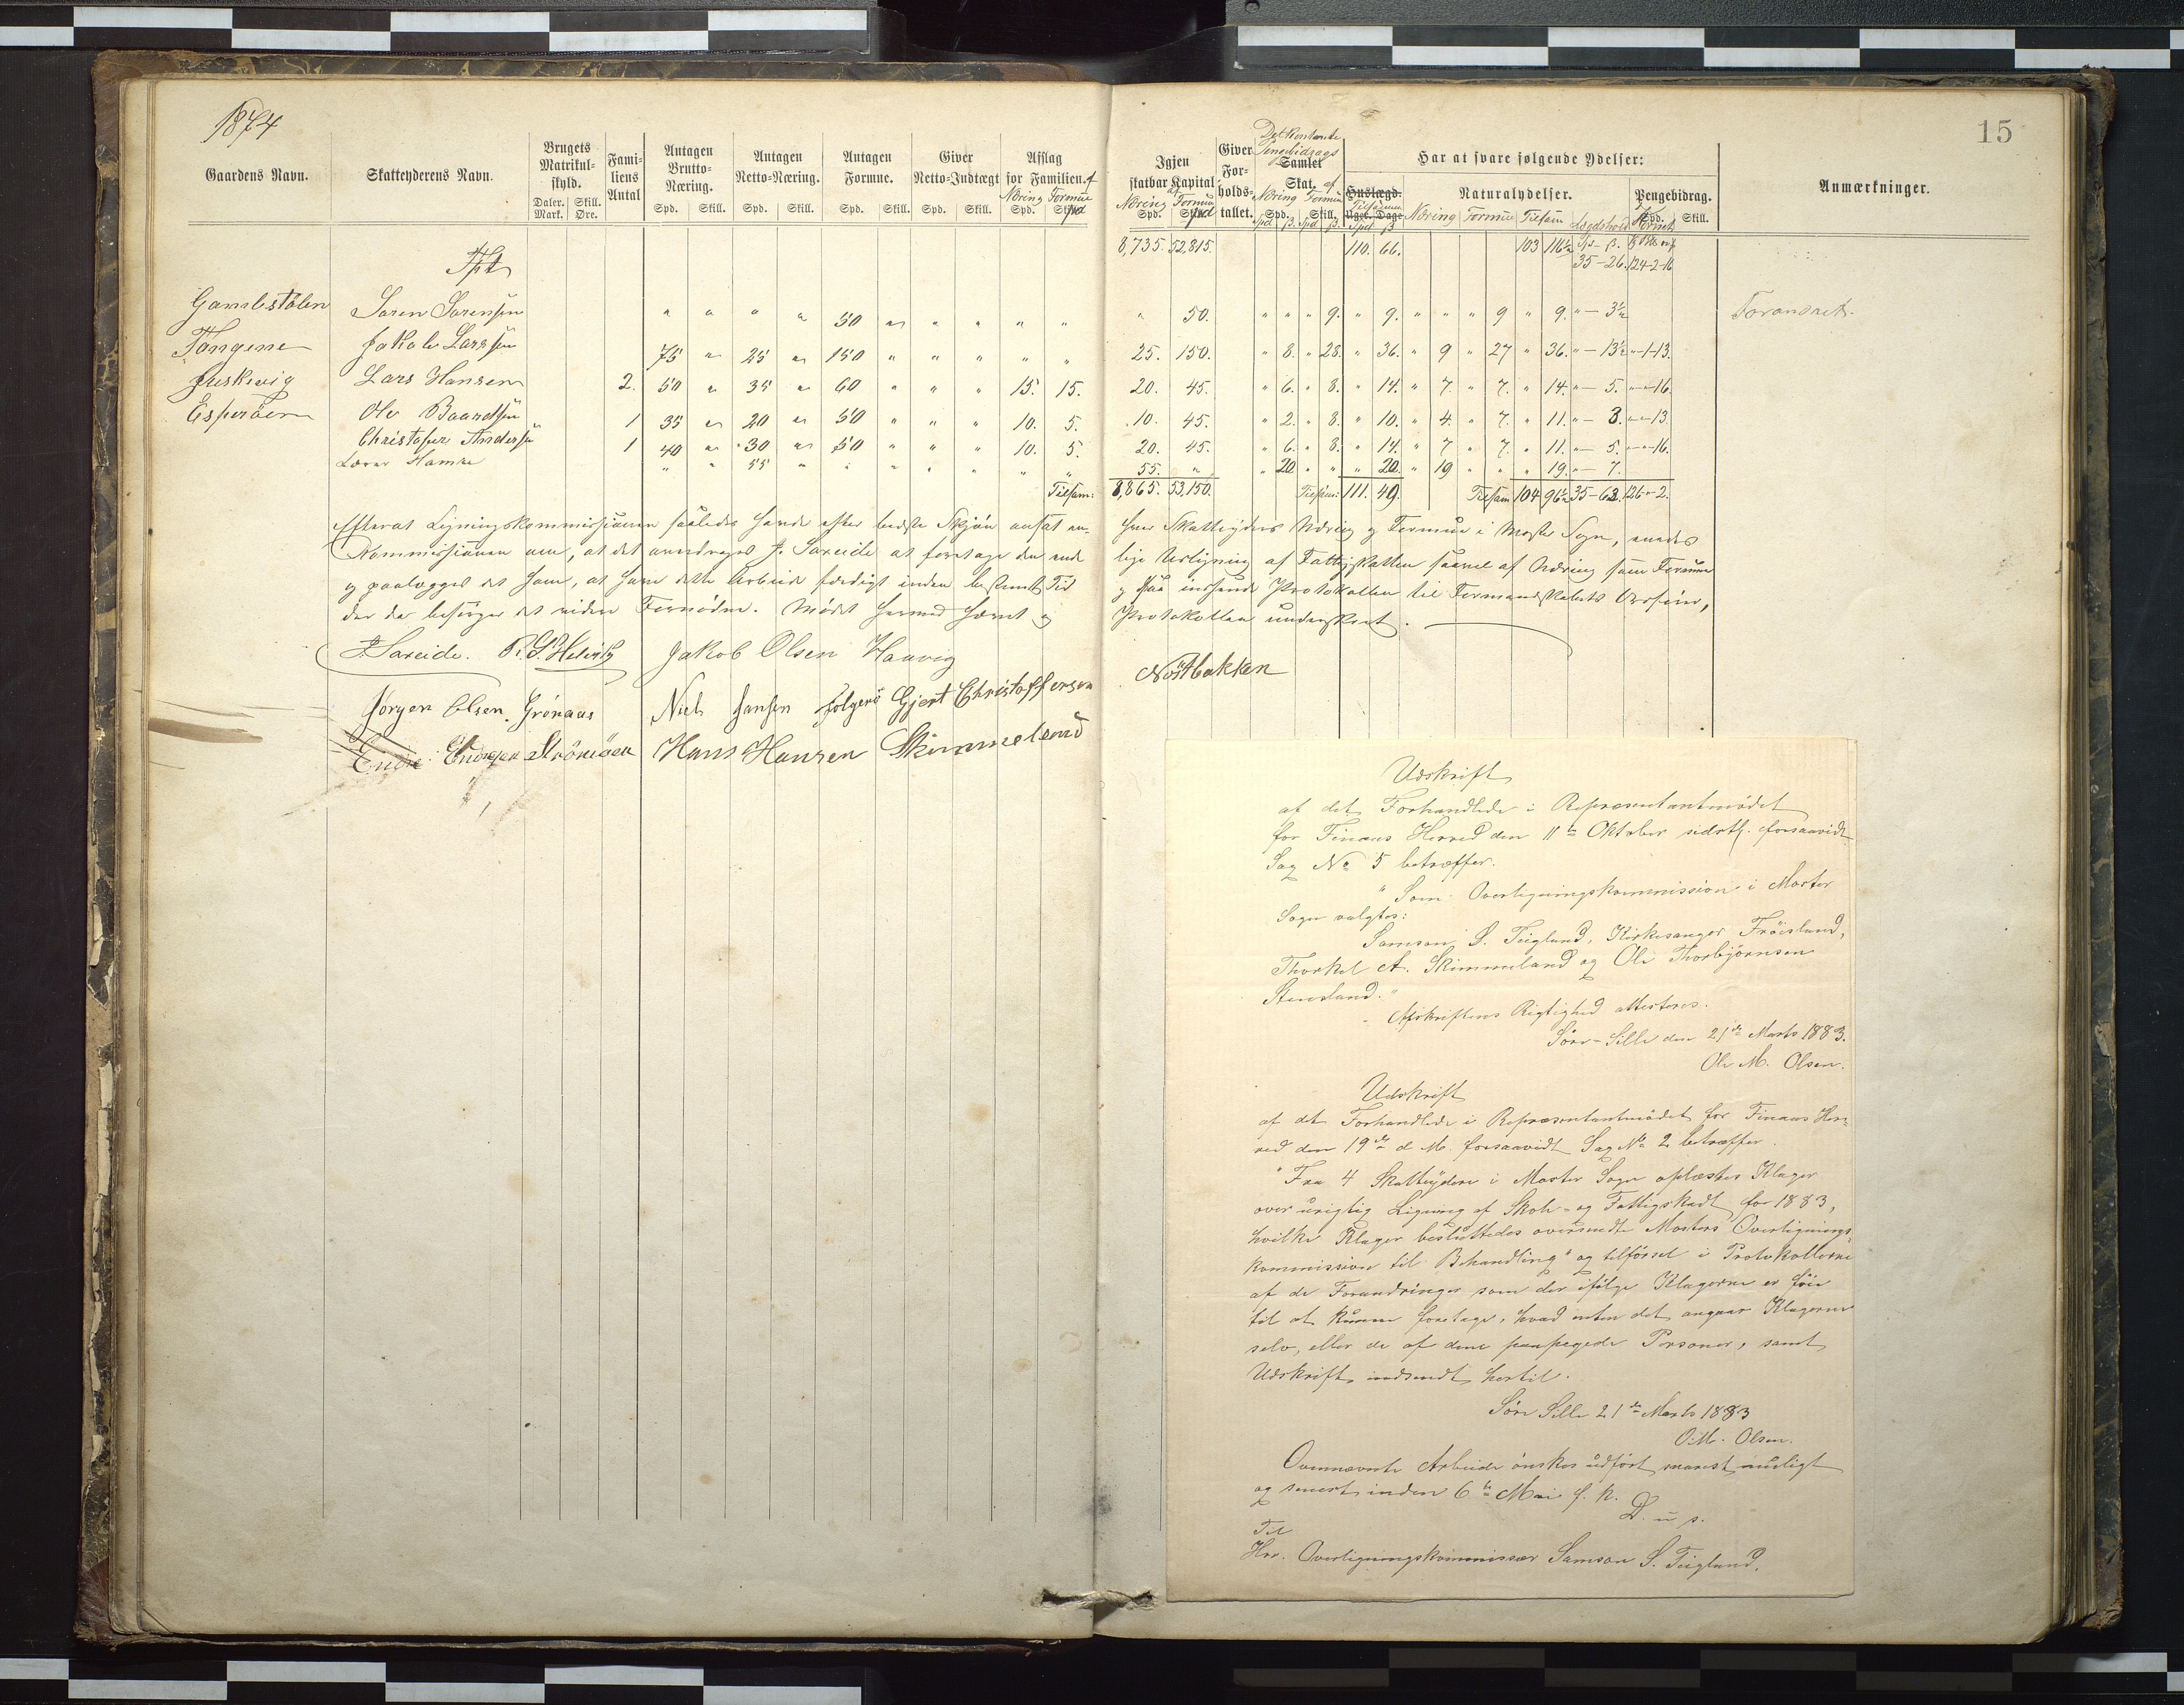 1874
15
Gaardens Navn. Skatteyderens Navn. Brugets Matrikul-skyld. Daler. Mark. Skill. Øre. Fami-liens Antal Antagen Brutto-Næring. Spd. Skill. Antagen Netto-Næring. Spd. Skill. Antagen Formue. Spd. Skill. Giver Netto-Indtægt Spd. Skill. Afslag for Familien. af Næring Formue Spd. Spd
Igjen skatbar Kapital af Næring Formue Spd. Spd Giver For-holds-tallet. Det kontante Pengebidrags Samlet Skat. af Næring Formue Spd. Skill. Spd ß. Spd ß. Har at svare følgende Ydelser: Huslægd. Uger. Dage Tilsammen Spd ß Naturalydelser. Næring Formue Tilsam Lægdshold Pengebidrag. Spd. Skill. Anmærkninger.
Tpt 8,735. 52,815. 110. 66. 103 116½ 35-26. 124-2-16
Gamlestølen Søren Sørensen " " " " 50 " " " " " " 50. " " " 9. " 9. " " " 9 " 9. "-3½ Foranset.
Tangene Jakob Larssen 75 " 25 " 150 " " " " " 25. 150. " 8. " 28. " 36. " 9 " 27 " 36. "-13½ "-1-13.
Juskevig Lars Hansen 2. 50 " 35 " 60 " " " 15. 15. 20. 45. " 6. " 8. " 14. " 7. " 7. " 14. "-5. "-"-16.
Espeøen Ole Baardsen 1 35 " 20 " 50 " " " 10. 5. 10. 45. " 2. " 8. " 10. " 4. " 7. " 11. "-3. "-"-13.
Christofer Andersen 1 40 " 30 " 50 " " " 10. 5. 20. 45. " 6. " 8. " 14. " 7 " 7. " 11. "-5. "-"-16.
Lærer Hamre " " 55 " " " " " " " 55. " " 20 " " " 20. " 19 " " " 19. "-7.
Tilsam: 8,865. 53,150. Tilsam: 111. 49. Tilsam 104 96½ 35-63. 126-"-2.
Efterat Ligningskommissionen saaledes havde efter bedste Skjøn ansat en-
hver Skatteyders Næring og Formue i Moster Sogn, enedes
Kommissionen om, at det overdrages J. Sareide at foretage den ende
lige Udligning af Fattigskatten saavel af Næring som Formue
og paalægges det ham, at have dette Arbeide færdigt inden bestemt Tid
og saa indsende Protokollen til Formandskabets Ordfører,
der da besørger det videre Fornødne. Mødet hermed hævet og
Protokollen underskrevet.
J. Sareide. Jakob Olsen Haavig Nøstbakken
Jørgen Olsen Grønaas Niels Jansen Folgerø Gjert Christoffersen
Endre Endresen Strömöen Hans Hansen Skimmeland
Udskrift
af det Forhandlede i Repræsentantmødet
for Finaas Herred den 11te Oktober sidstl. forsaavidt
Sag No 5 betræffer.
"Som Overligningskommission i Moster
Sogn valgtes:
Samson S. Teigland, Kirkesanger Frøisland,
Thorkel A. Skimmeland og Ole Thorbjørnsen
Stensland."
Afskriftens Rigtighed attesteres.
Søre-Lille den 21de Marts 1883.
Ole M. Olsen.
Udskrift
af det Forhandlede i Repræsentantmødet for Finaas Her-
red den 19de d M. forsaavidt Sag No 2 betræffer.
"Fra 4 Skatteydere i Moster Sogn oplæstes Klager
over urigtig Ligning af Skole- og Fattigskat for 1883,
hvilke Klager besluttedes oversendte Mosters Overlignings-
kommission til Behandling" og tilførsel i Protokollerne
af de Forandringer som der ifølge Klagerne er føie
til at kunne foretage, hvad enten det angaar Klagerne
selv, eller de af dem paapegede Personer, samt
Udskrift indsendt hertil.
Søre Lille 21de Marts 1883
O. M. Olsen.
Ovennævnte Arbeide ønskes udført snarest muligt
og senest inden 6te Mai f. k.
D. u s.
Til
Hr. Overligningskommissær Samson S. Teigland.